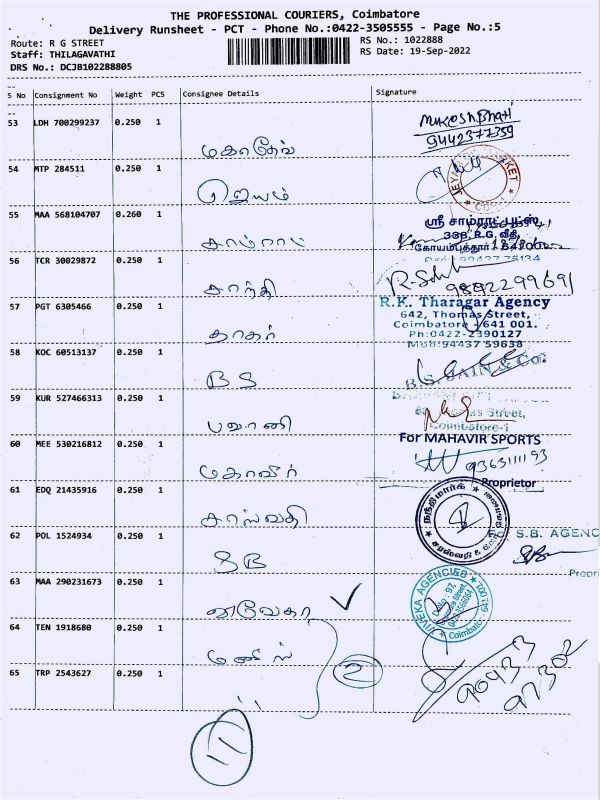 THE PROFESSIONAL COURIERS, Coimbatore
Delivery Runsheet - PCT - Phone No.:0422-3505555 - Page No.:5
Route: R G STREET
RS No.: 1022888
Staff: THILAGAVATHI
RS Date: 19-Sep-2022
DRS No.: DCJB102288805
S No Consignment No Weight PCS Consignee Details Signature
53 LDH 700299237 0.250 1
மகாதேவ்
MUKESH Bhati
9442377359
54 MTP 284511 0.250 1
ஜெயம்
55 MAA 568104707 0.260 1
சாம்ராட்
ஸ்ரீ சாம்ராட் புட்ஸ்,
338, R.G. வீதி,
கோயம்புத்தூர்
56 TCR 30029872 0.250 1
சாந்தி
9892299691
57 PGT 6305466 0.250 1
தாகர்
R.K. Tharagar Agency
642, Thomas Street,
Coimbatore - 641 001.
Ph:0422-2390127
Mob:94437 59638
58 KOC 60513137 0.250 1
BS
B.S. JAIN & Co.
59 KUR 527466313 0.250 1
பவானி
Street,
Coimbatore-1
60 MEE 530216812 0.250 1
மகாவீர்
For MAHAVIR SPORTS
9363111193
Proprietor
61 EDQ 21435916 0.250 1
சரஸ்வதி
62 POL 1524934 0.250 1
SB
S.B. AGENC
Propri
63 MAA 290231673 0.250 1
விவேகா
VIVEKA AGENCIES
Coimbatore
64 TEN 1918680 0.250 1
மணிஸ்
2
65 TRP 2543627 0.250 1
"
90433
97302
11